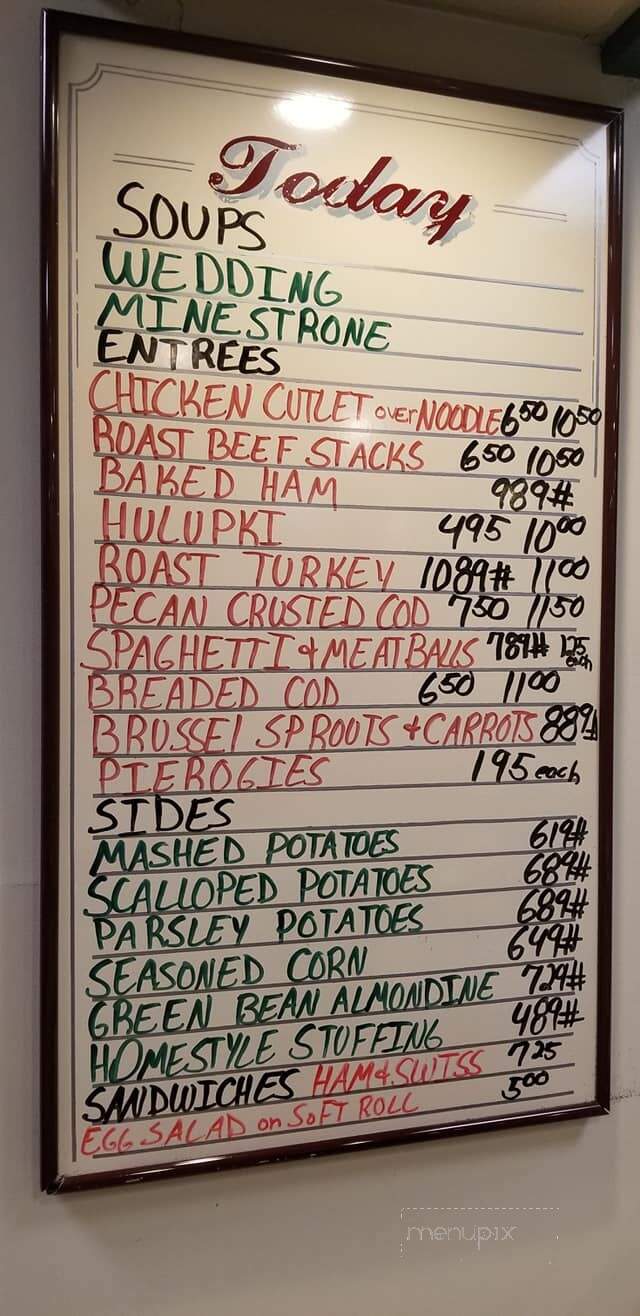 Today
SOUPS
WEDDING
MINESTRONE
ENTREES
CHICKEN CUTLET over NOODLE 650 10 50
ROAST BEEF STACKS 650 1050
BAKED HAM 989#
HULUPKI 495 1000
ROAST TURKEY 1089# 1100
PECAN CRUSTED COD 750 1150
SPAGHETTI & MEATBALLS 789# 125 each
BREADED COD 650 1100
BRUSSEl SPROUTS & CARROTS 889#
PIEROGIES 195 each
SIDES
MASHED POTATOES 619#
SCALLOPED POTATOES 689#
PARSLEY POTATOES 689#
SEASONED CORN 649#
GREEN BEAN ALMONDINE 729#
HOMESTYLE STUFFING 489#
SANDWICHES HAM & SWISS 725
EGG SALAD on SOFT ROLL 500
menupix